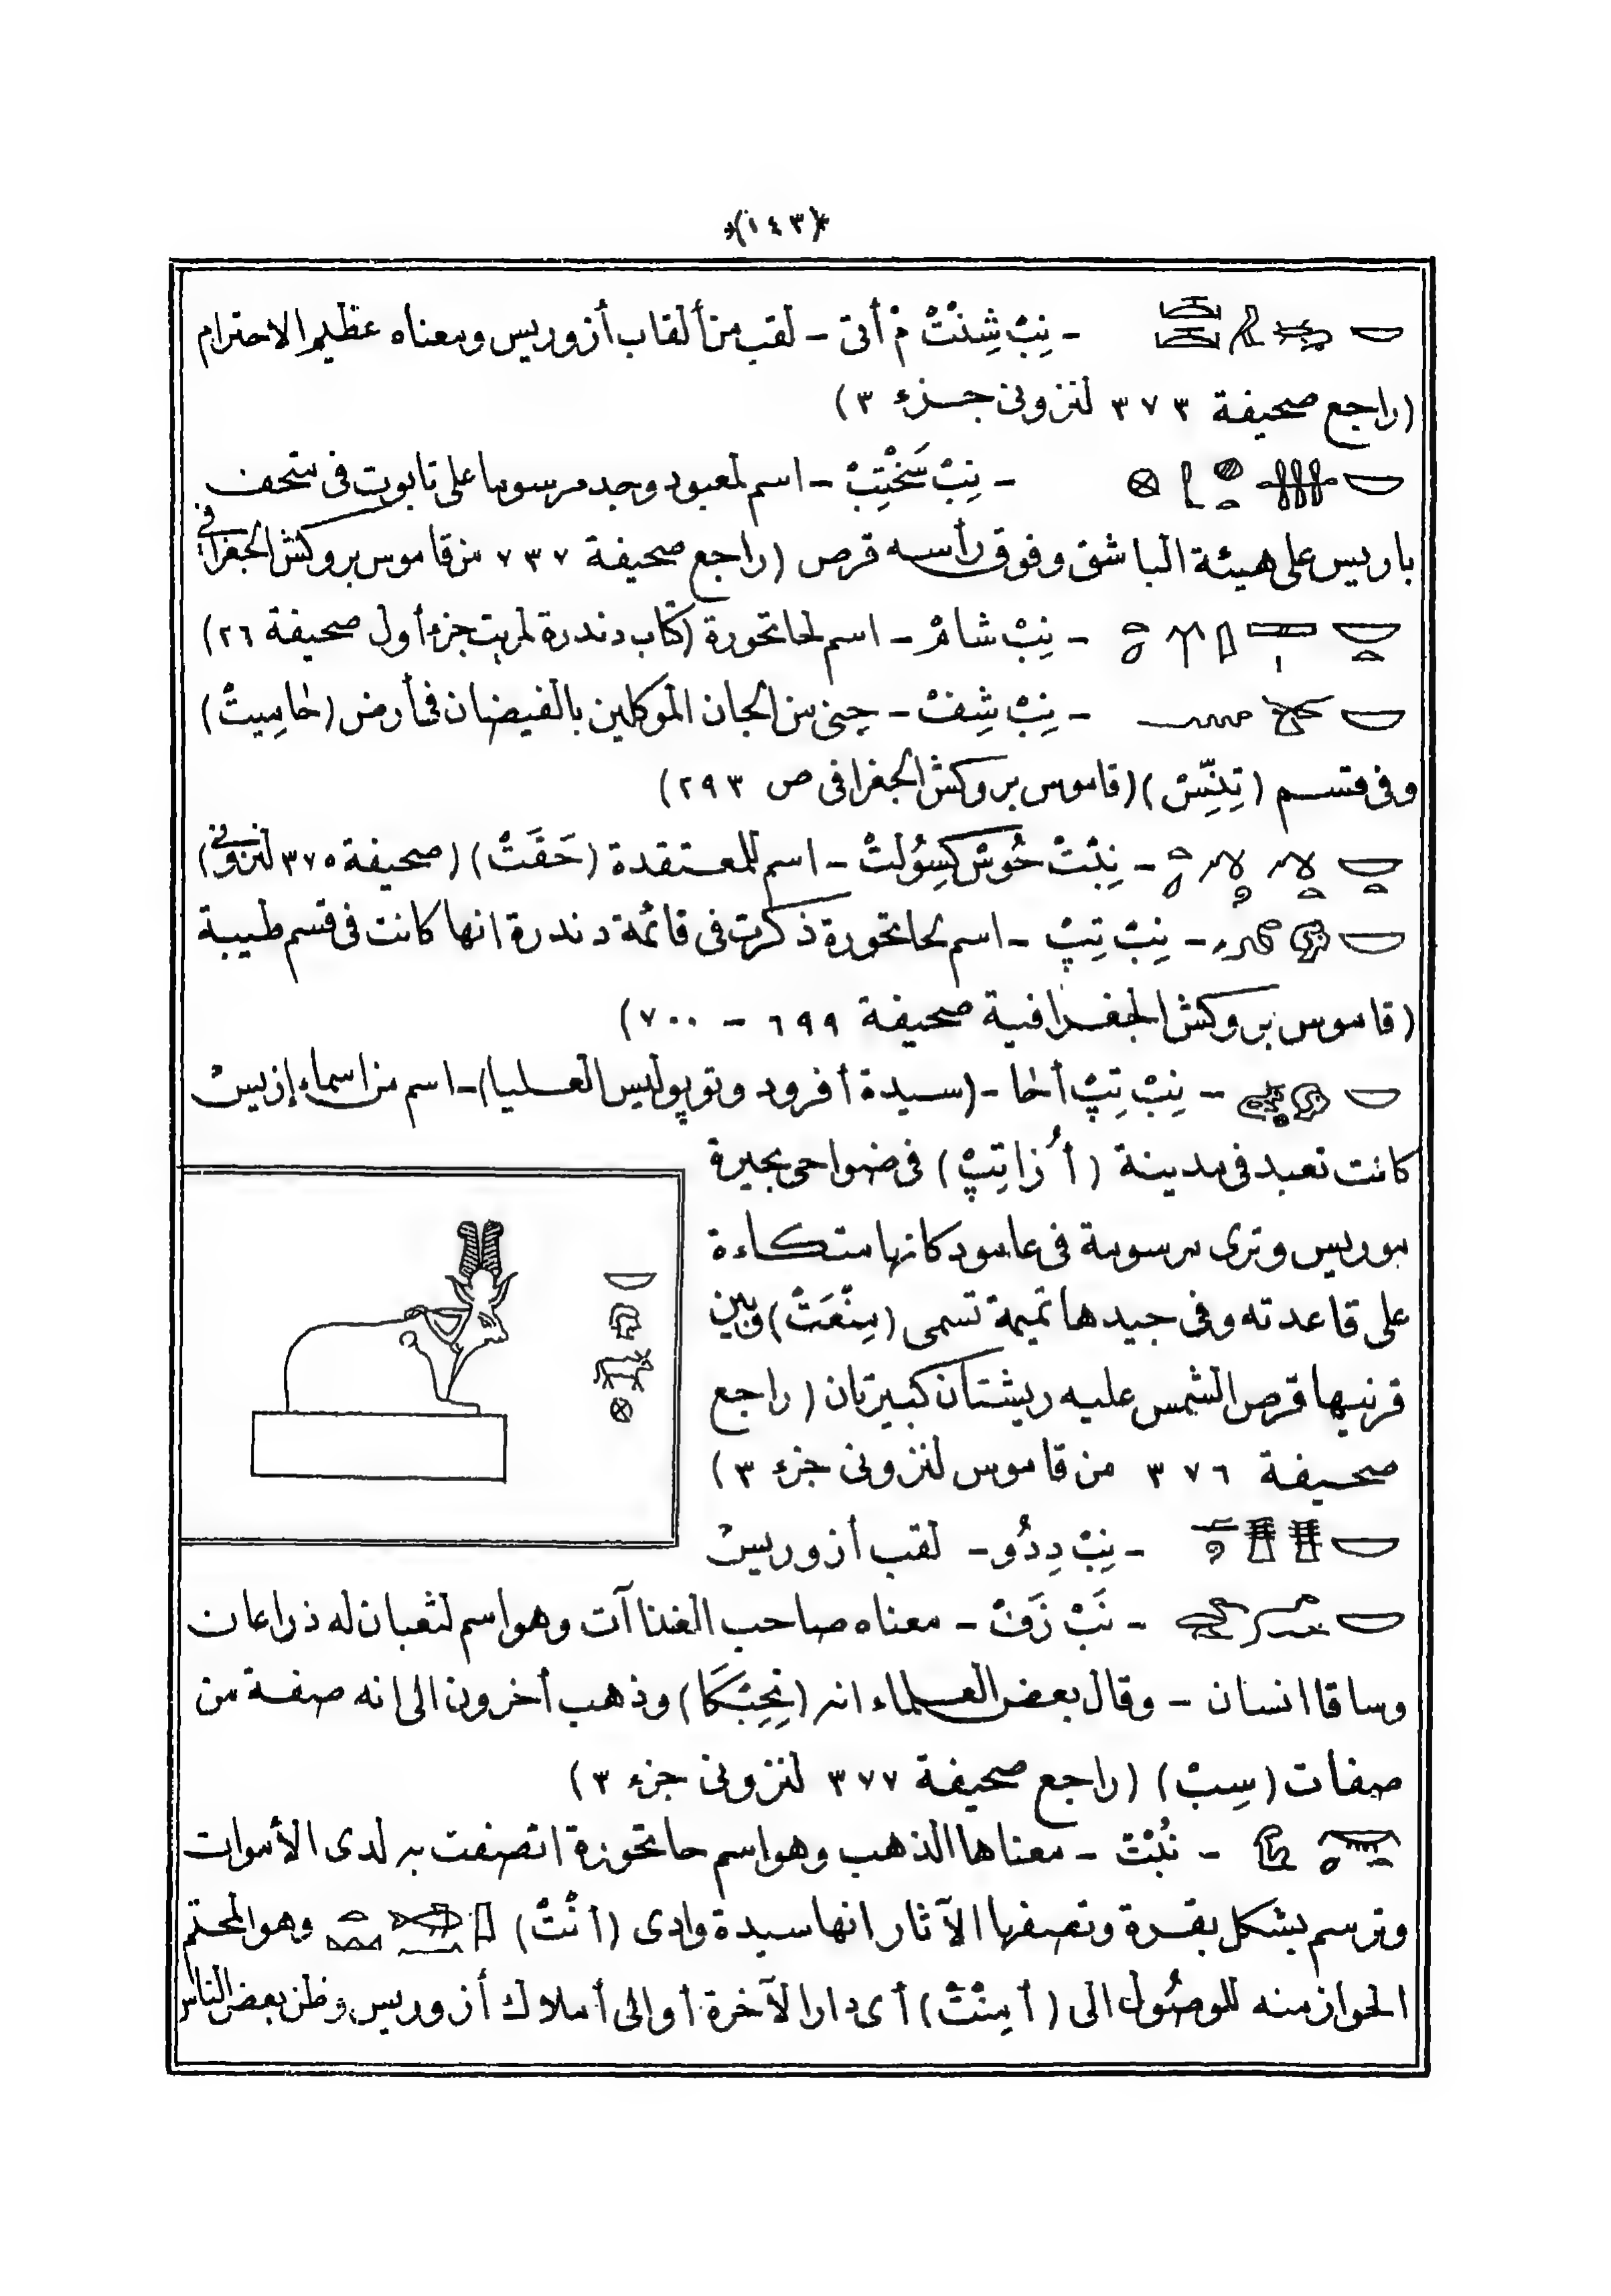 *(١٤٣)*
- نِبْ شِنْتْ مْ أتى - لقب من ألقاب أزوريس ومعناه عظيم الاحترام
(راجع صحيفة ٣٧٣ لنزونى جزء ٣)
- نِبْ سَخْتِبْ - اسم لمعبود وجد مرسوما على تابوت فى متحف
باريس على هيئة الباشق وفوق رأسه قرص (راجع صحيفة ٧٣٧ من قاموس بروكش الجغرافى
- نِبْ شامْ - اسم لحاتحورة (كتاب دندرة لمريت جزء أول صحيفة ٢٦)
- نِبْ شِفْ - جنى من الجان الموكلين بالفيضان فى أرض (خاسِيتْ)
وفى قسم (تِنِّسْ) (قاموس بروكش الجغرافى ص ٢٩٣)
- نِبْتْ حُوسْ كِسُولتْ - اسم للمعتقدة (حَقَتْ) (صحيفة ٣٧٥ لنزونى)
- نِبْ تِپْ - اسم لحاتحورة ذكرت فى قائمة دندرة انها كانت فى قسم طيبة
(قاموس بروكش الجغرافية صحيفة ٦٩٩ - ٧٠٠)
- نِبْ تِپْ أخا - (سيدة أفرود وتوپوليس العليا) - اسم من اسماء إزيسْ
كانت تعبد فى مدينة (أُزاتِپْ) فى ضواحى بحيرة
موريس وترى مرسومة فى عامود كانها متكاءة
على قاعدته وفى جيدها تميمة تسمى (مِنْعَتْ) وبين
قرنيها قرص الشمس عليه ريشتان كبيرتان (راجع
صحيفة ٣٧٦ من قاموس لنزونى جزء ٣)
- نِبْ دِدُو - لقب أزوريسْ
- نَبْ زَفْ - معناه صاحب الغذاآت وهو اسم لثعبان له ذراعان
وساقا انسان - وقال بعض العلماء انه (نِحِبْكَا) وذهب أخرون الى انه صفة من
صفات (سِبْ) (راجع صحيفة ٣٧٧ لنزونى جزء ٣)
- نُبْتْ - معناها الذهب وهو اسم حاتحورة اتصفت به لدى الأموات
وترسم بشكل بقرة وتصفها الآثار انها سيدة وادى (أنْتْ) وهو المحتم
الجواز منه للوصُول الى (أمِنْتْ) أى دار الآخرة أو الى أملاك أزوريس وظن بعض الناس